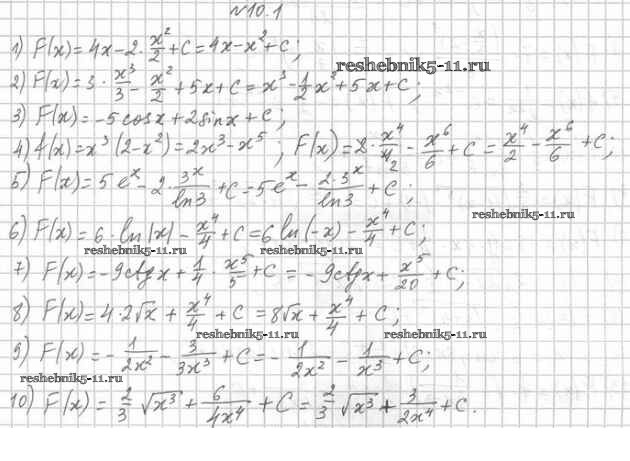 №10.1
1) F(x) = 4x - 2 · x²/2 + C = 4x - x² + C;
reshebnik5-11.ru
2) F(x) = 3 · x³/3 - x²/2 + 5x + C = x³ - 1/2 x² + 5x + C;
3) F(x) = -5cosx + 2sinx + C;
4) f(x) = x³(2 - x²) = 2x³ - x⁵; F(x) = 2 · x⁴/4₂ - x⁶/6 + C = x⁴/2 - x⁶/6 + C;
5) F(x) = 5eˣ - 2 · 3ˣ/ln3 + C = 5eˣ - 2·3ˣ/ln3 + C;
reshebnik5-11.ru
6) F(x) = 6 · ln|x| - x⁴/4 + C = 6ln(-x) - x⁴/4 + C;
reshebnik5-11.ru reshebnik5-11.ru
7) F(x) = -9ctgx + 1/4 · x⁵/5 + C = -9ctgx + x⁵/20 + C;
8) F(x) = 4 · 2√x + x⁴/4 + C = 8√x + x⁴/4 + C;
reshebnik5-11.ru reshebnik5-11.ru
9) F(x) = -1/2x² - 3/3x³ + C = -1/2x² - 1/x³ + C;
reshebnik5-11.ru
10) F(x) = 2/3 √x³ + 6/4x⁴ + C = 2/3 √x³ + 3/2x⁴ + C.